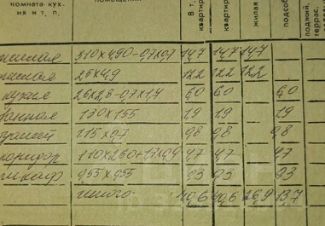 комнато кух-
ня и т. п.
помещения
В т.
квартир
квартир
жилая
подсоб
лоджий,
террас,
жилая 3,10х4,90-0,7х0,7 14,7 14,7 14,7
жилая 25х4,9 12,2 12,2 12,2
кухня 2,6х2,8-0,7х1,4 6,0 6,0 6,0
ванная 1,30х1,55 1,9 1,9 1,9
туалет 1,15х0,7 0,8 0,8 0,8
коридор 4,7 4,7 4,7
шкаф 0,55х0,55 0,3 0,3 0,3
итого 40,6 40,6 26,9 13,7